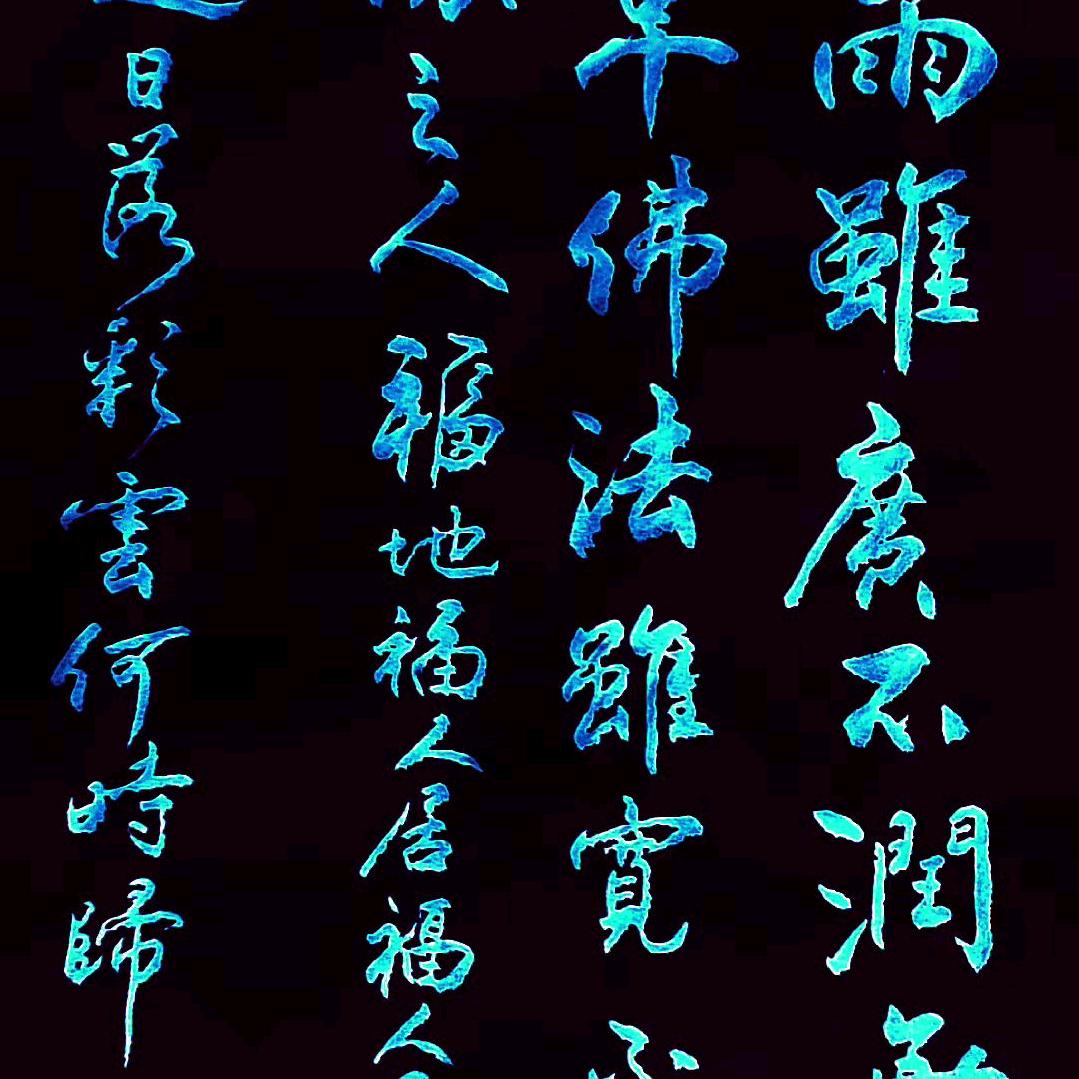 雨雖廣不潤無
草佛法雖寬不
之人福地福人居福人
日落彩雲何時歸